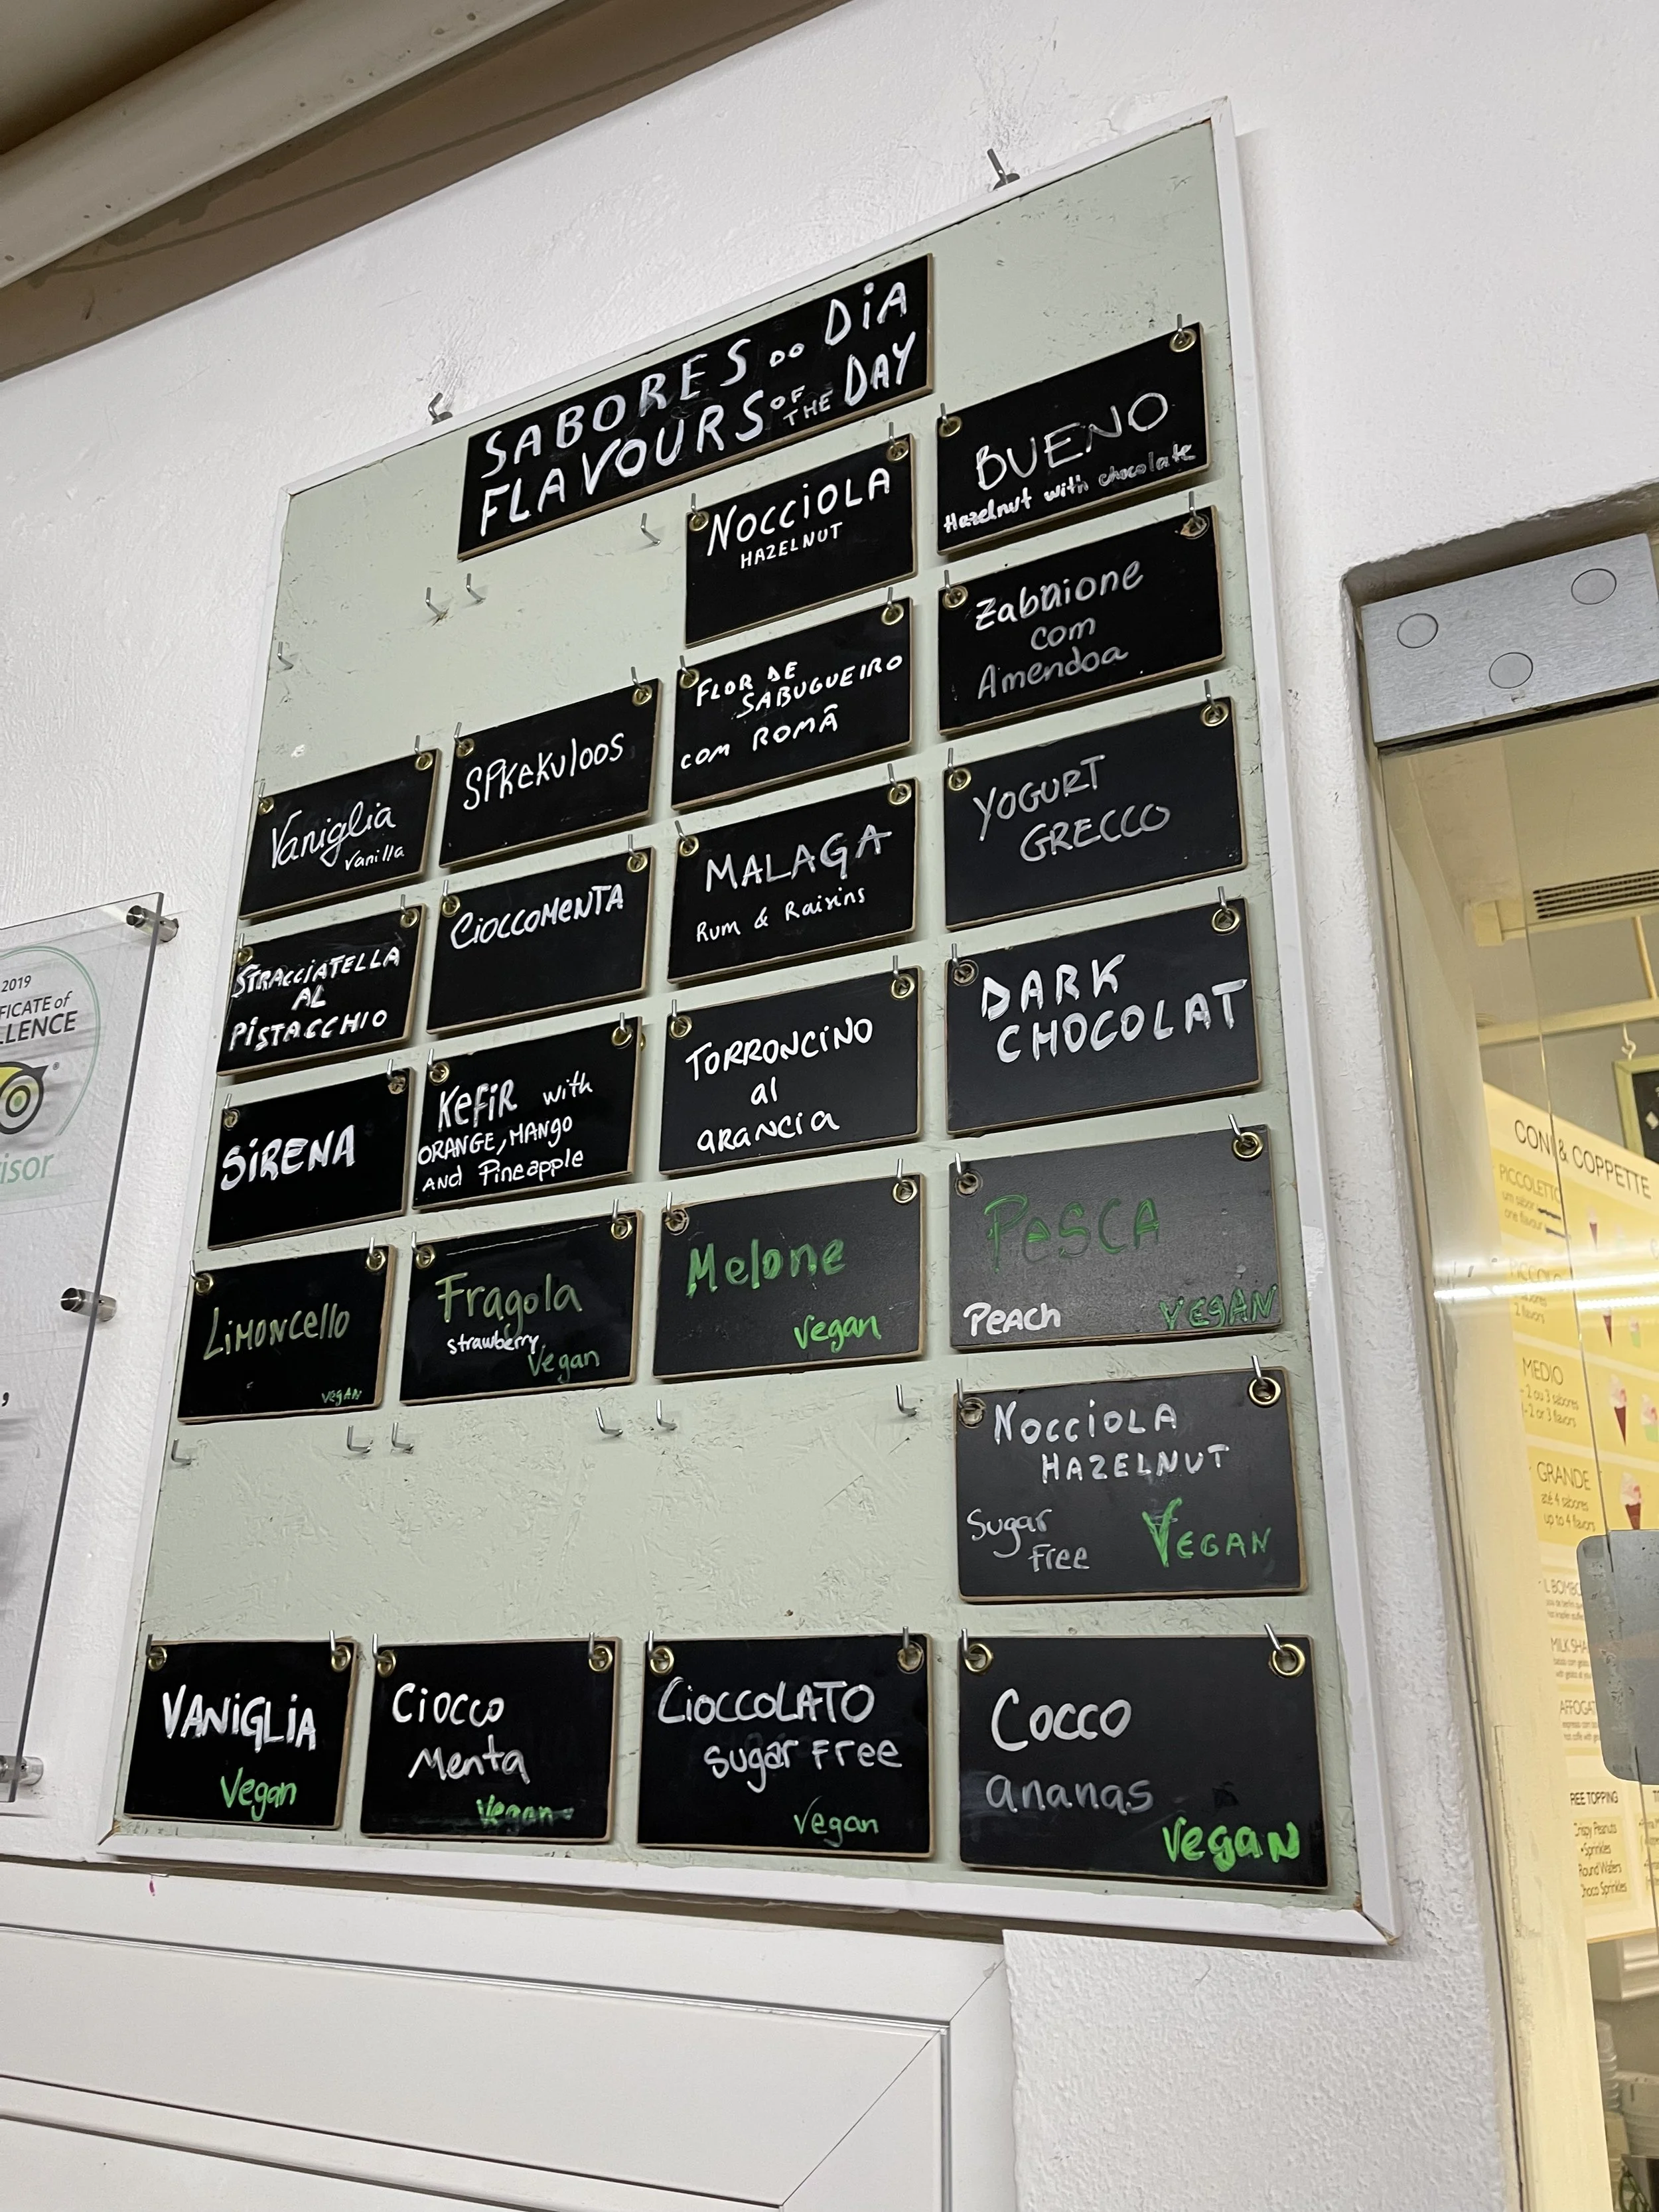 SABORES DO DIA
FLAVOURS OF THE DAY
NOCCIOLA
HAZELNUT
BUENO
Hazelnut with chocolate
Vaniglia
Vanilla
SPKEKULOOS
FLOR DE
SABUGUEIRO
COM ROMÃ
Zabaione
com
Amendoa
STRACCIATELLA
AL
PISTACCHIO
CIOCCOMENTA
MALAGA
Rum & Raisins
YOGURT
GRECCO
SIRENA
KEFIR with
ORANGE, MANGO
AND Pineapple
TORRONCINO
al
ARANCIA
DARK
CHOCOLAT
LIMONCELLO
VEGAN
Fragola
strawberry
Vegan
Melone
Vegan
PESCA
PEACH
VEGAN
NOCCIOLA
HAZELNUT
Sugar
Free
VEGAN
VANIGLIA
Vegan
CIOCCO
Menta
Vegan
CIOCCOLATO
Sugar FREE
Vegan
COCCO
ananas
Vegan
2019
FICATE of
LLENCE
isor
CONI & COPPETTE
PICCOLETTO
um sabor
one flavour
2 flavors
MEDIO
- 2 ou 3 sabores
- 2 or 3 flavors
GRANDE
até 4 sabores
up to 4 flavors
MILK SHA
AFFOGAT
REE TOPPING
Crispy Peanuts
•Sprinkles
Round Wafers
Choco Sprinkles